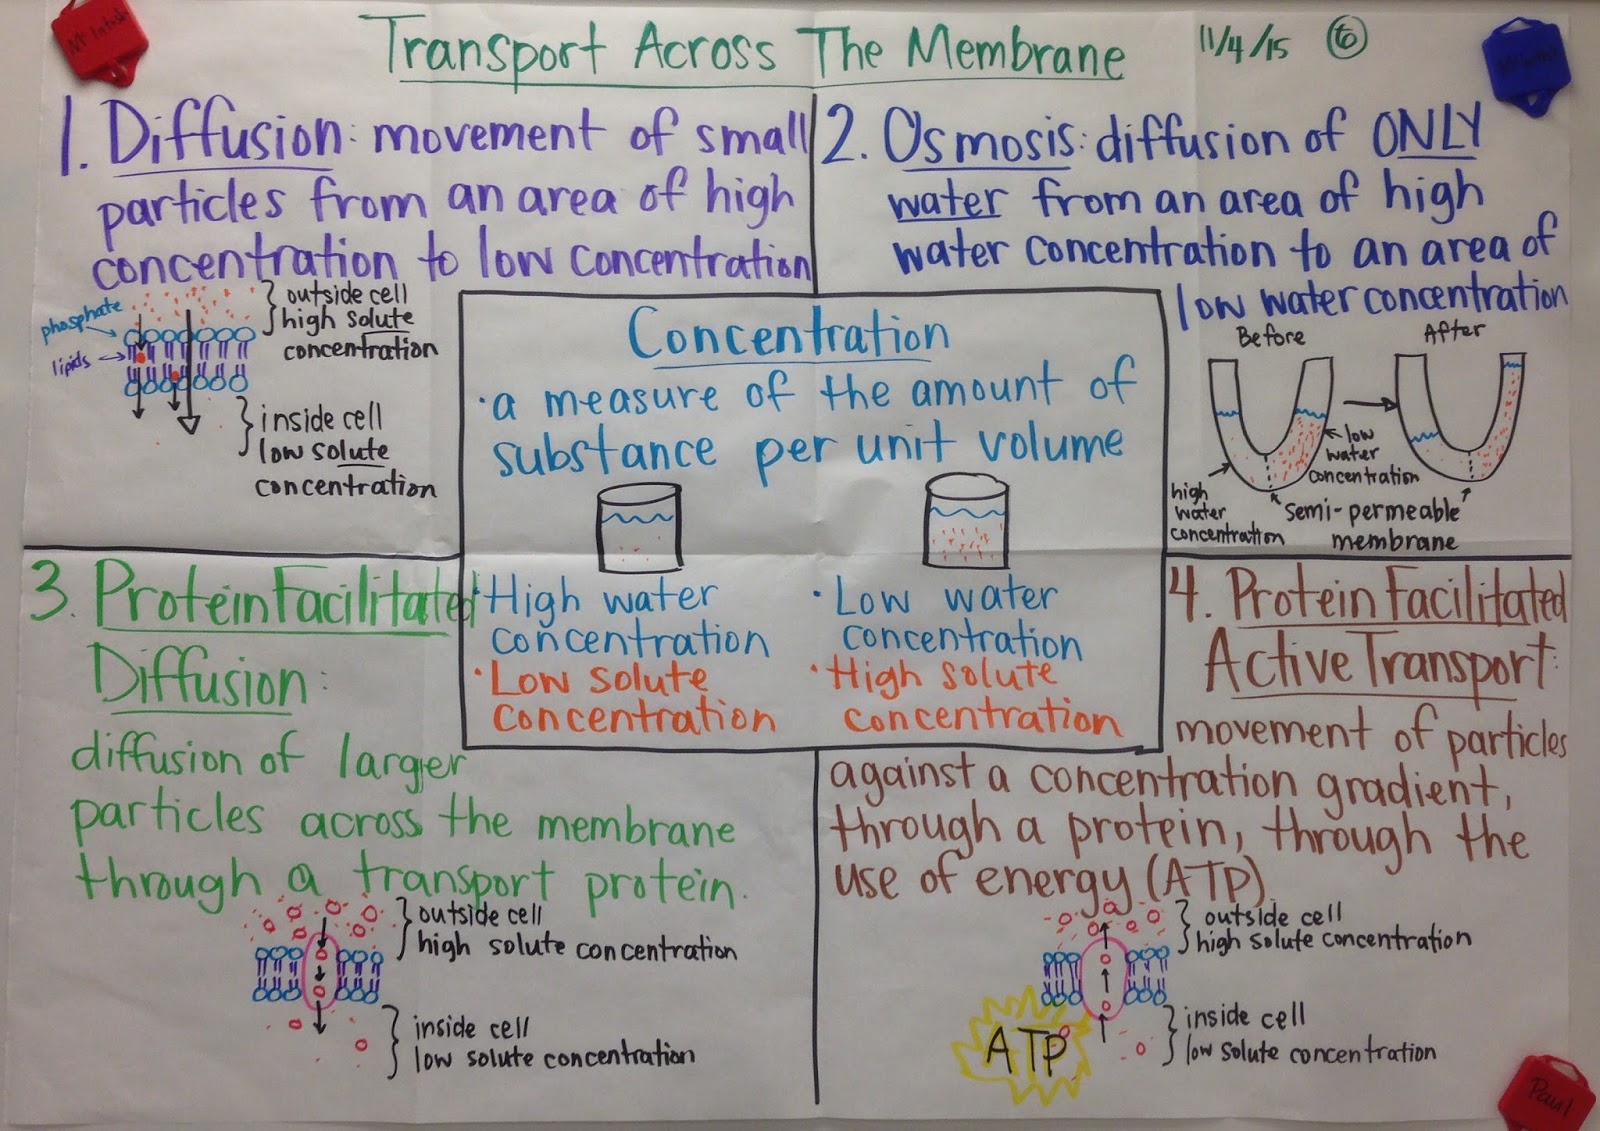 McIntosh
Transport Across The Membrane 11/4/15 6
McIntosh
1. Diffusion: movement of small
particles from an area of high
concentration to low concentration
phosphate
lipids
outside cell
high solute
concentration
inside cell
low solute
concentration
2. Osmosis: diffusion of ONLY
water from an area of high
water concentration to an area of
low water concentration
Before After
low
water
concentration
high
water
concentration
semi-permeable
membrane
Concentration
·a measure of the amount of
substance per unit volume
·High water
concentration
·Low solute
concentration
·Low water
concentration
·High solute
concentration
3. Protein Facilitated
Diffusion:
diffusion of larger
particles across the membrane
through a transport protein.
outside cell
high solute concentration
inside cell
low solute concentration
4. Protein Facilitated
Active Transport:
movement of particles
against a concentration gradient,
through a protein, through the
use of energy (ATP)
outside cell
high solute concentration
ATP
inside cell
low solute concentration
Paul